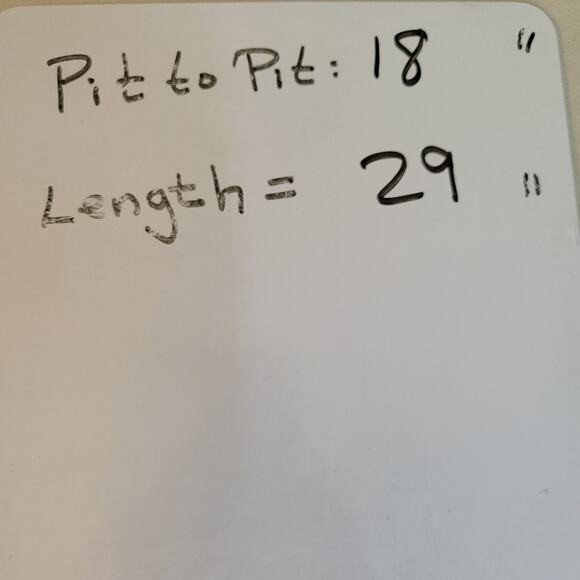 Pit to Pit: 18 "
Length = 29 "